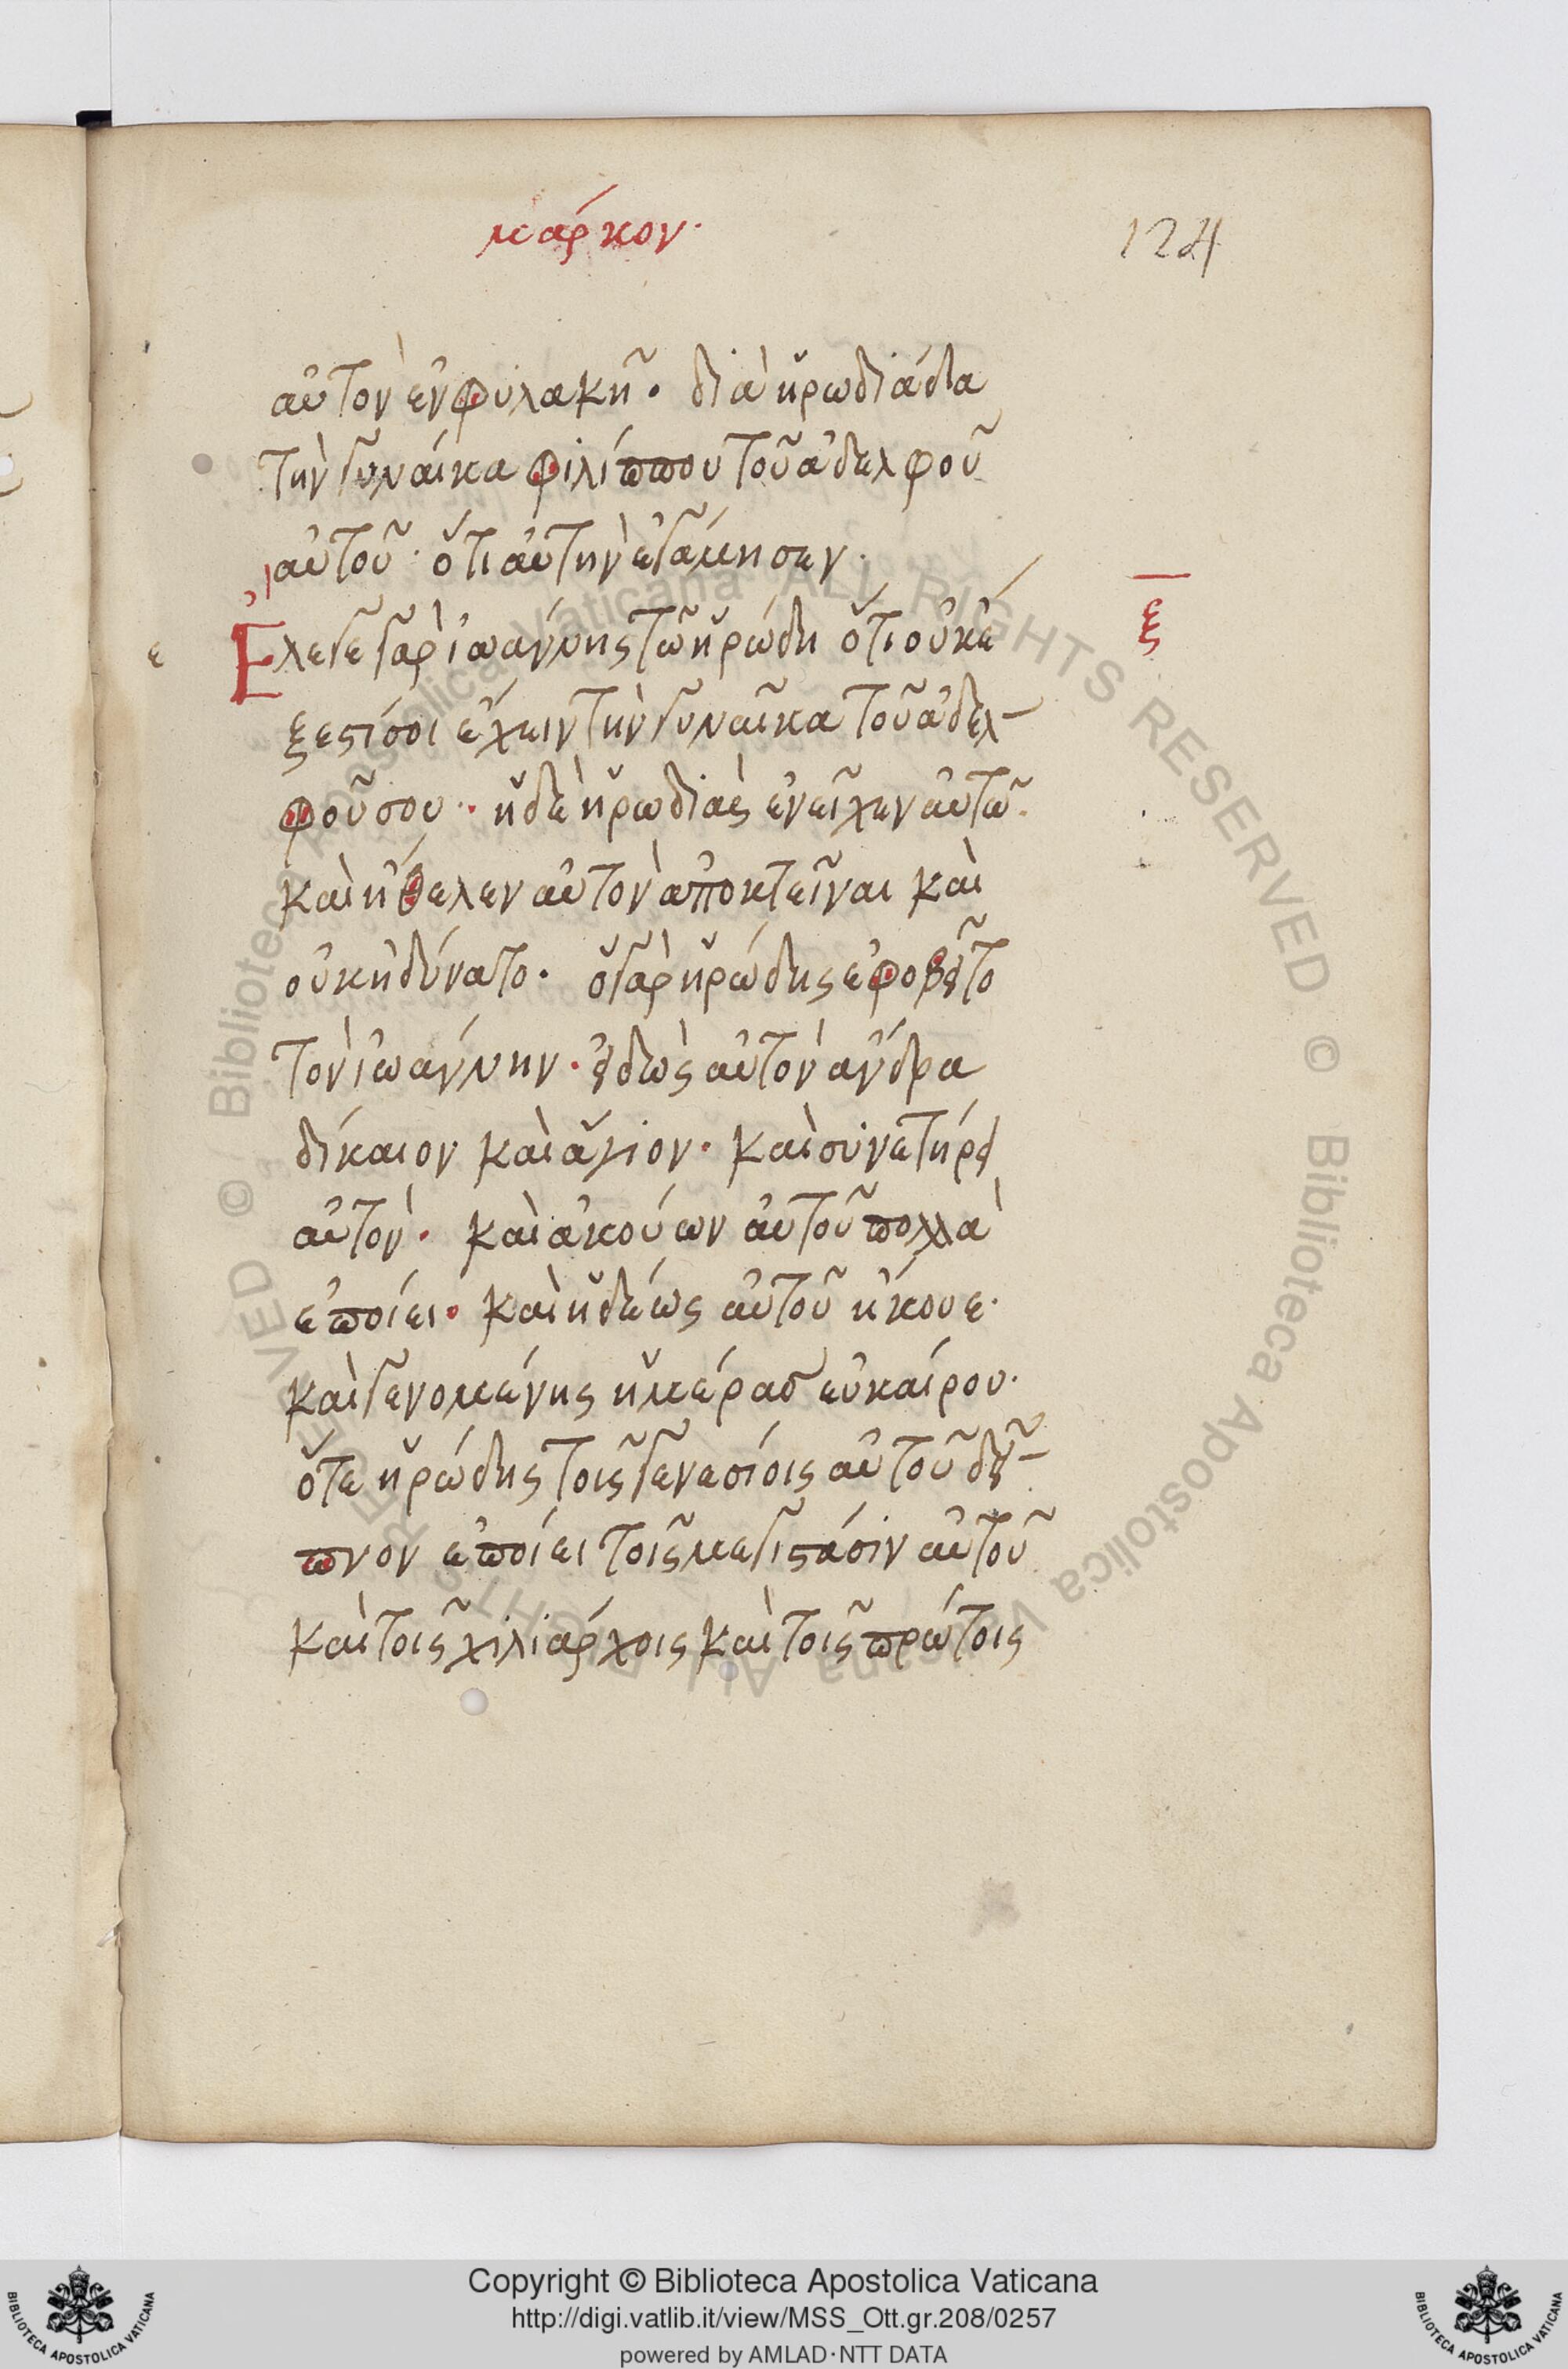 μάρκον·
124
αὐτὸν ἐν φυλακῆ· διὰ ἡρωδιάδα
τὴν γυναίκα φιλίππου τοῦ ἀδελφοῦ
αὐτοῦ· ὅτι αὐτὴν ἐγάμησεν·
ε
Ἔλεγε γὰρ ἰωάννης τῶ ἡρώδη ὅτι οὐκ ἔ
ξ
ξεστί σοι ἔχειν τὴν γυναῖκα τοῦ ἀδελ-
φοῦ σου· ἡ δὲ ἡρωδιὰς ἐνεῖχεν αὐτῶ·
καὶ ἤθελεν αὐτὸν ἀποκτεῖναι καὶ
οὐκ ἠδύνατο· ὁ γὰρ ἡρώδης ἐφοβεῖτο
τὸν ἰωάννην· εἰδὼς αὐτὸν ἄνδρα
δίκαιον καὶ ἅγιον· καὶ συνετήρει
αὐτὸν· καὶ ἀκούων αὐτοῦ πολλὰ
ἐποίει· καὶ ἡδέως αὐτοῦ ἤκουε·
καὶ γενομένης ἡμέρας εὐκαίρου·
ὅτε ἡρώδης τοῖς γενεσίοις αὐτοῦ δεῖ-
πνον ἐποίει τοῖς μεγιστάσιν αὐτοῦ
καὶ τοῖς χιλιάρχοις καὶ τοῖς πρώτοις
© Biblioteca Apostolica Vaticana ALL RIGHTS RESERVED © Biblioteca Apostolica Vaticana ALL RIGHTS RESERVED
Copyright © Biblioteca Apostolica Vaticana
http://digi.vatlib.it/view/MSS_Ott.gr.208/0257
powered by AMLAD·NTT DATA
BIBLIOTECA APOSTOLICA VATICANA
BIBLIOTECA APOSTOLICA VATICANA